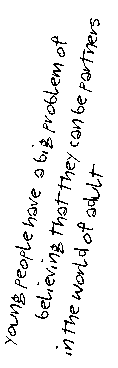 young people have a big problem of
believing that they can be partners
in the world of adult